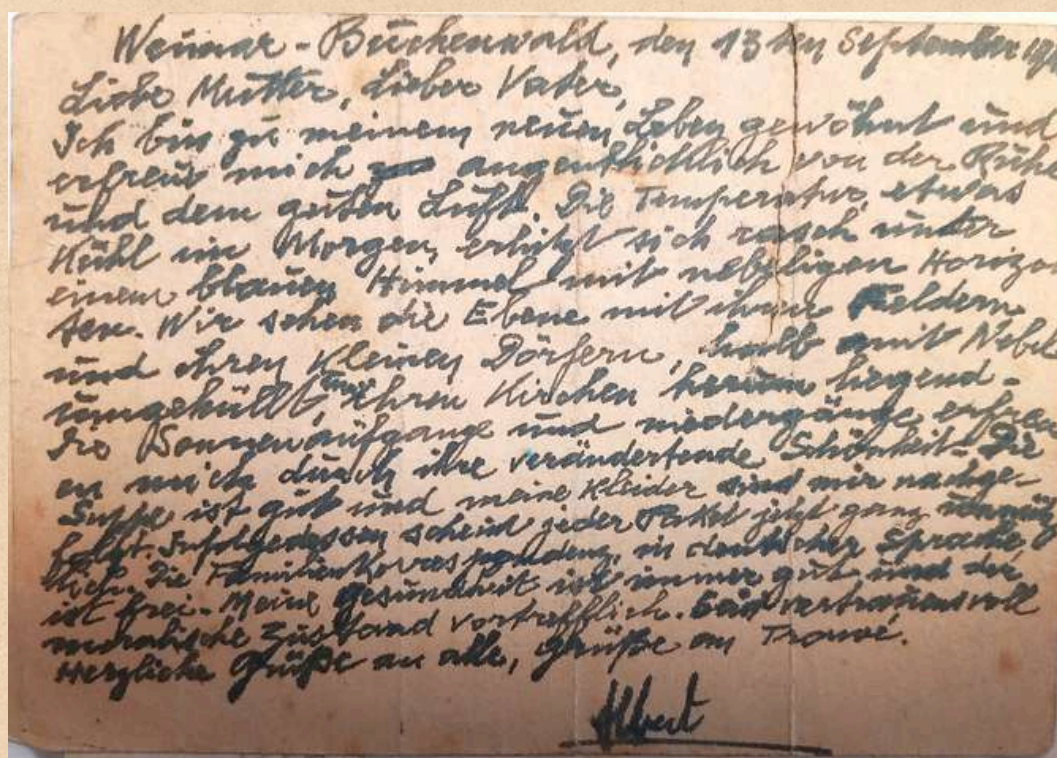 Weimar-Buchenwald, den 13ten September 19
Liebe Mutter, Lieber Vater,
Ich bin zu meinem neuen Leben gewöhnt und
erfreue mich augenblicklich von der Ruhe
und dem guten Luft. Die Temperatur, etwas
Kühl im Morgen, erhitzt sich rasch unter
einem blauen Himmel mit nebeligen Horizon
ten. Wir sehen die Ebene mit ihren Feldern
und ihren Kleinen Dörfern, halb mit Nebel
umgehüllt, um ihren Kirchen herum liegend-
Die Sonnenaufgange und niedergänge erfreu
en mich durch ihre verändertende Schönheit. Die
Suppe ist gut und meine Kleider sind mir nachge-
folgt. Infolgedessen scheint jeder Paket jetzt ganz unnütz
lich. Die Familienkorrespondenz, in deutscher Sprache,
ist frei. Meine gesundheit ist immer gut und der
moralische Zustand vortrefflich. Seid vertrauensvoll
Herzliche Grüße an alle, Grüße an
Albert